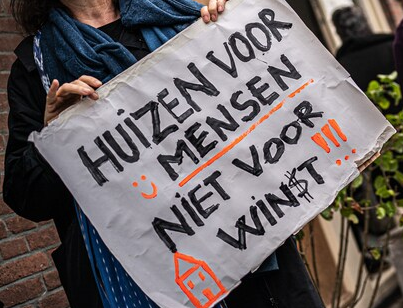 HUIZEN VOOR
MENSEN
NIET VOOR
WIN$T!!!